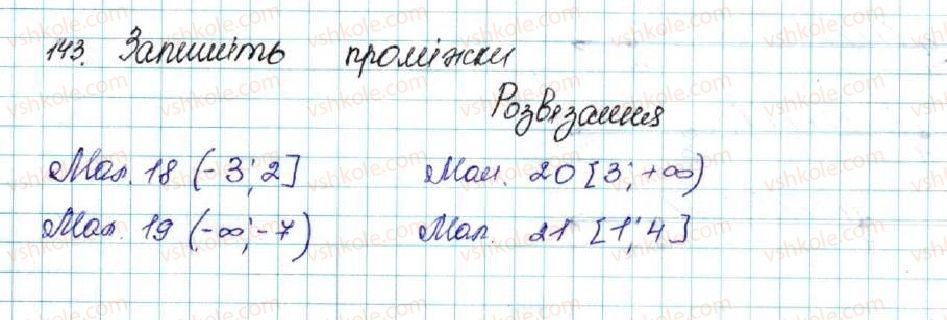 143. Запишіть проміжки
Розвязання
Мал. 18 (-3; 2]
Мал. 20 [3; +∞)
Мал. 19 (-∞; -7)
Мал. 21 [1; 4]